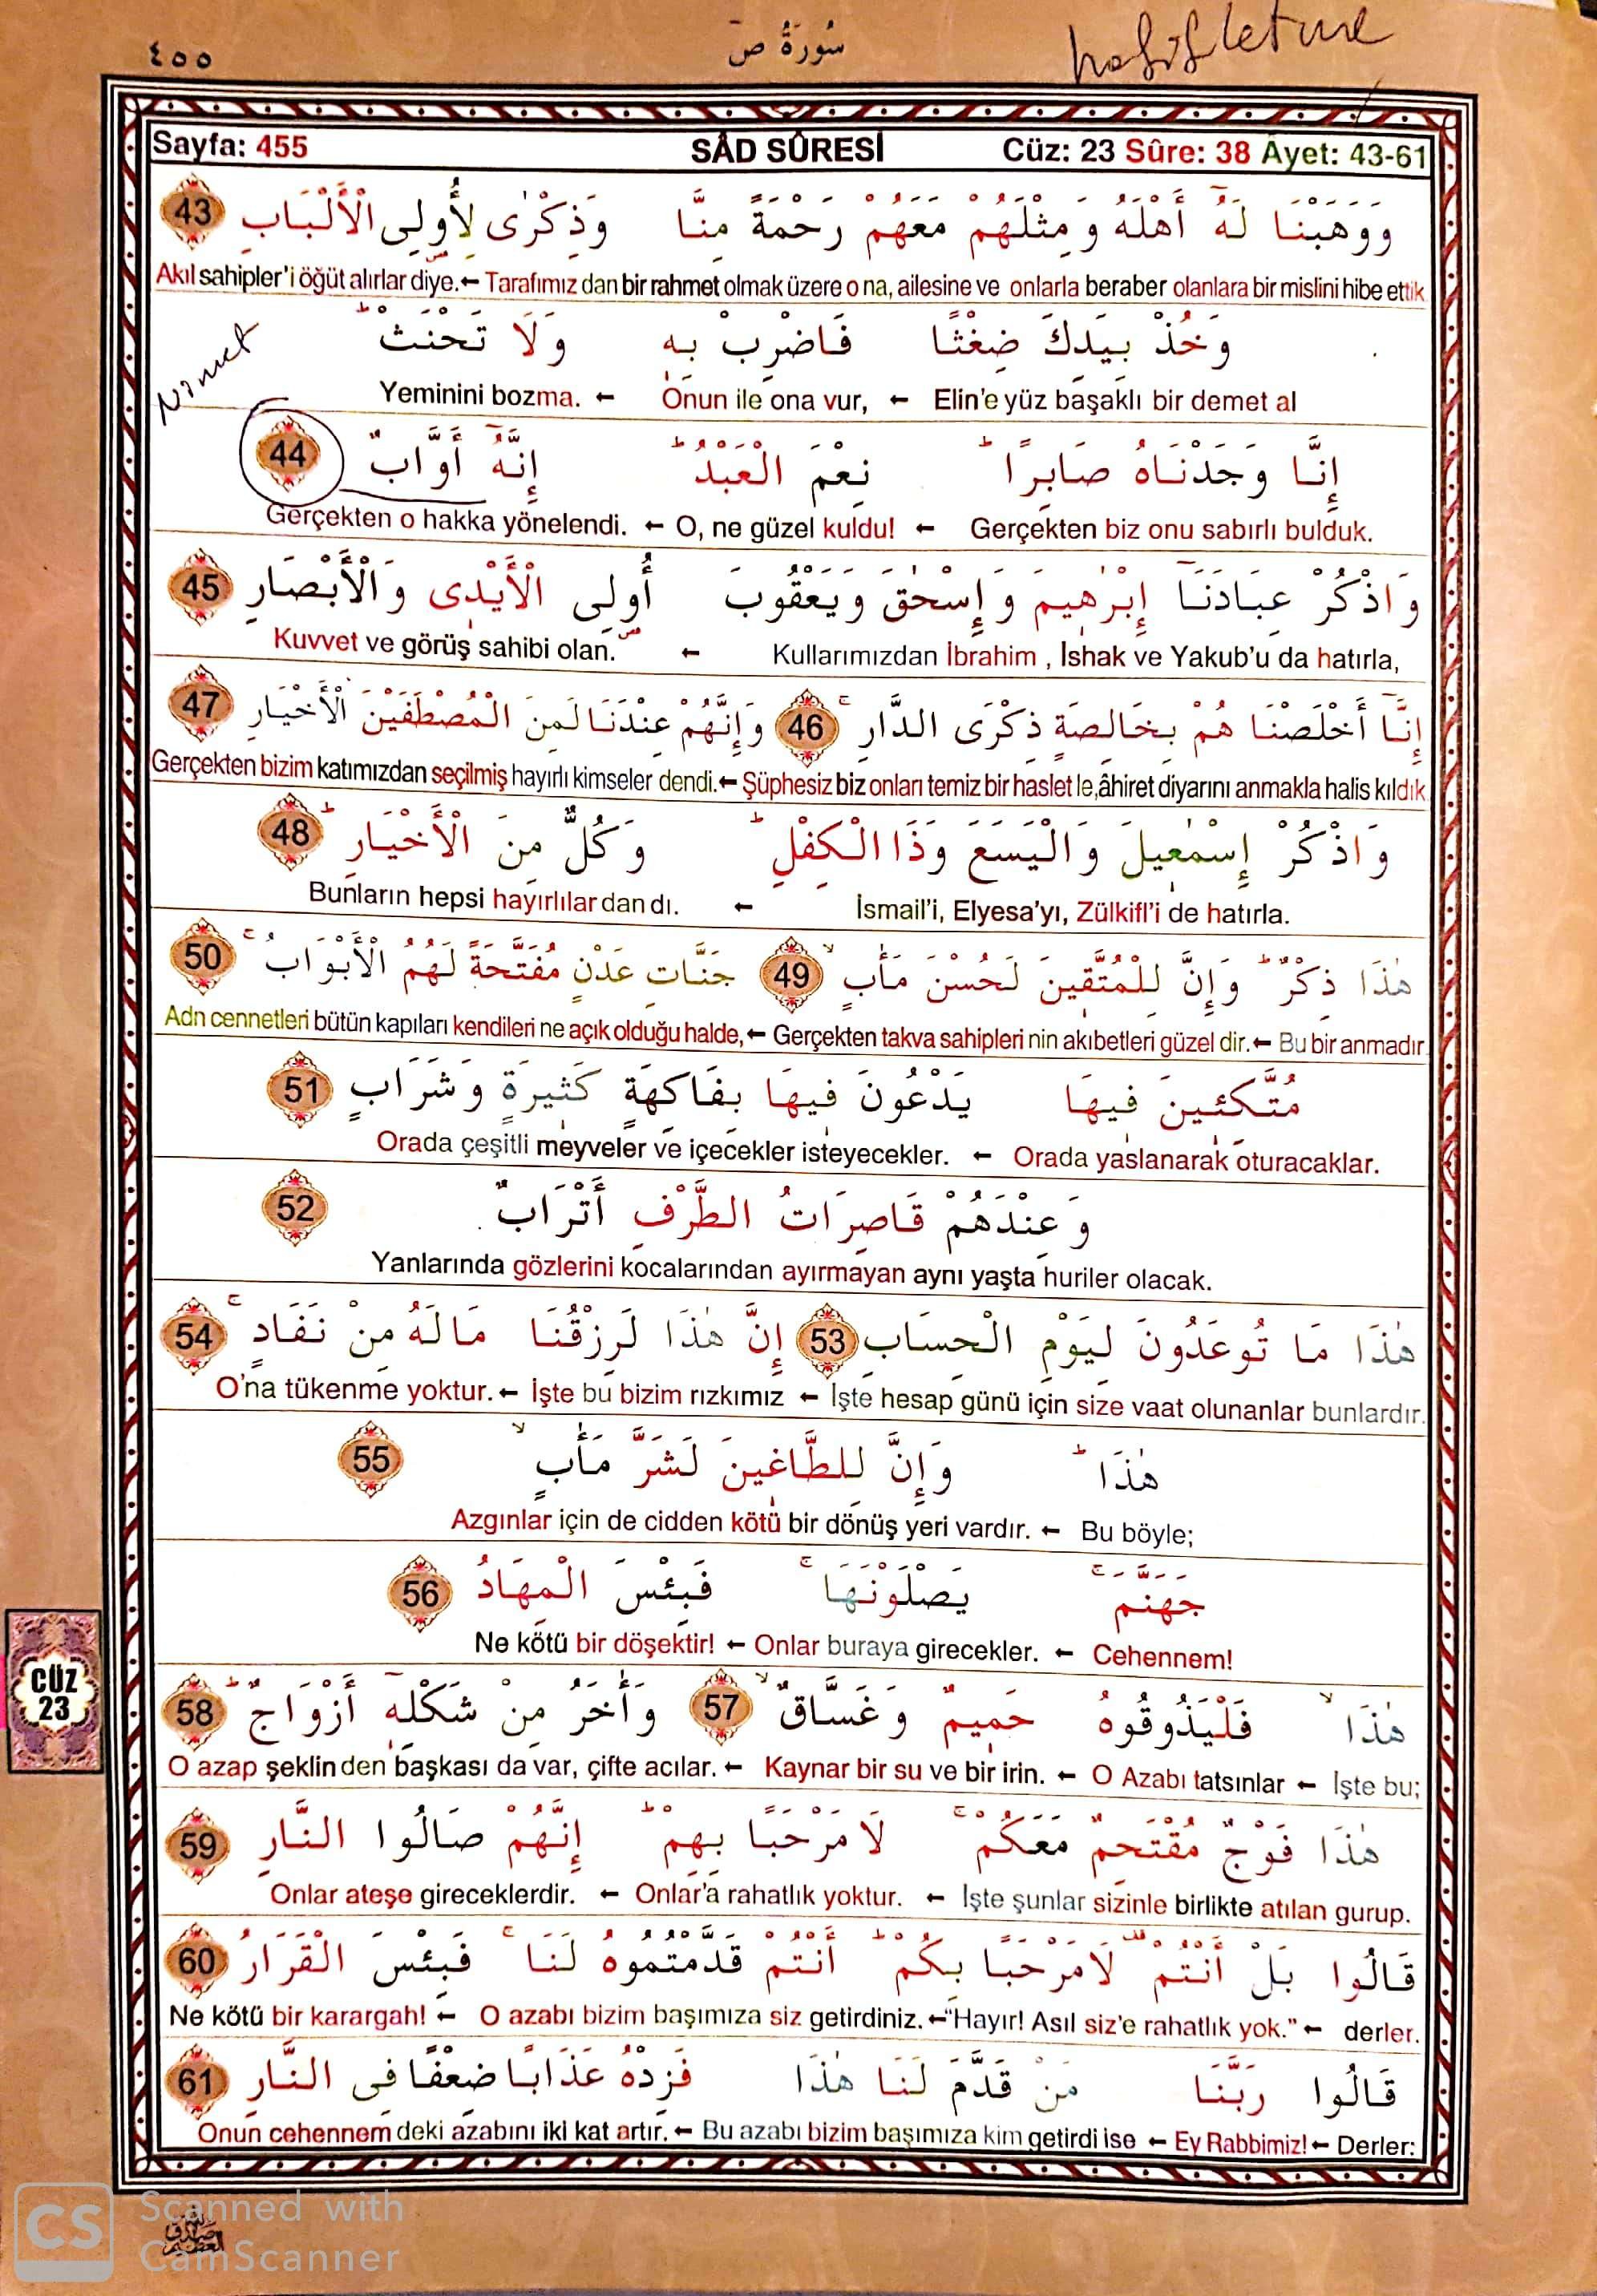 ٤٥٥ سُورَةُ صٓ hafifletme
Sayfa: 455 SÂD SÛRESİ Cüz: 23 Sûre: 38 Âyet: 43-61
وَوَهَبْنَا لَهُٓ أَهْلَهُ وَمِثْلَهُمْ مَعَهُمْ رَحْمَةً مِنَّا وَذِكْرٰى لِأُولِى الْأَلْبَابِ 43
Akıl sahipler'i öğüt alırlar diye.← Tarafımız dan bir rahmet olmak üzere o na, ailesine ve onlarla beraber olanlara bir mislini hibe ettik
وَخُذْ بِيَدِكَ ضِغْثًا فَاضْرِبْ بِهِ وَلَا تَحْنَثْ ط
Nimet
Yeminini bozma. ← Onun ile ona vur, ← Elin'e yüz başaklı bir demet al
إِنَّا وَجَدْنَاهُ صَابِرًا ط نِعْمَ الْعَبْدُ ط إِنَّهُٓ أَوَّابٌ 44
Gerçekten o hakka yönelendi. ← O, ne güzel kuldu! ← Gerçekten biz onu sabırlı bulduk.
وَاذْكُرْ عِبَادَنَٓا إِبْرٰهِيمَ وَإِسْحٰقَ وَيَعْقُوبَ أُولِى الْأَيْدِى وَالْأَبْصَارِ 45
Kuvvet ve görüş sahibi olan. ← Kullarımızdan İbrahim , İshak ve Yakub'u da hatırla,
إِنَّٓا أَخْلَصْنَا هُمْ بِخَالِصَةٍ ذِكْرَى الدَّارِ ج 46 وَإِنَّهُمْ عِنْدَنَا لَمِنَ الْمُصْطَفَيْنَ الْأَخْيَارِ 47
Gerçekten bizim katımızdan seçilmiş hayırlı kimseler dendi.← Şüphesiz biz onları temiz bir haslet le,âhiret diyarını anmakla halis kıldık
وَاذْكُرْ إِسْمٰعِيلَ وَالْيَسَعَ وَذَا الْكِفْلِ ط وَكُلٌّ مِنَ الْأَخْيَارِ ط 48
Bunların hepsi hayırlılar dan dı. ← İsmail'i, Elyesa'yı, Zülkifl'i de hatırla.
هٰذَا ذِكْرٌ ط وَإِنَّ لِلْمُتَّقِينَ لَحُسْنَ مَاٰبٍ لا 49 جَنَّاتِ عَدْنٍ مُفَتَّحَةً لَهُمُ الْأَبْوَابُ ج 50
Adn cennetleri bütün kapıları kendileri ne açık olduğu halde,← Gerçekten takva sahipleri nin akıbetleri güzel dir.← Bu bir anmadır
مُتَّكِئِينَ فِيهَا يَدْعُونَ فِيهَا بِفَاكِهَةٍ كَثِيرَةٍ وَشَرَابٍ 51
Orada çeşitli meyveler ve içecekler isteyecekler. ← Orada yaslanarak oturacaklar.
وَعِنْدَهُمْ قَاصِرَاتُ الطَّرْفِ أَتْرَابٌ 52
Yanlarında gözlerini kocalarından ayırmayan aynı yaşta huriler olacak.
هٰذَا مَا تُوعَدُونَ لِيَوْمِ الْحِسَابِ 53 إِنَّ هٰذَا لَرِزْقُنَا مَالَهُ مِنْ نَفَادٍ ج 54
O'na tükenme yoktur. ← İşte bu bizim rızkımız ← İşte hesap günü için size vaat olunanlar bunlardır.
هٰذَا ط وَإِنَّ لِلطَّاغِينَ لَشَرَّ مَاٰبٍ لا 55
Azgınlar için de cidden kötü bir dönüş yeri vardır. ← Bu böyle;
جَهَنَّمَ ج يَصْلَوْنَهَا ج فَبِئْسَ الْمِهَادُ 56
Ne kötü bir döşektir! ← Onlar buraya girecekler. ← Cehennem!
هٰذَا لا فَلْيَذُوقُوهُ حَمِيمٌ وَغَسَّاقٌ لا 57 وَاٰخَرُ مِنْ شَكْلِهِٓ أَزْوَاجٌ ط 58
O azap şeklin den başkası da var, çifte acılar. ← Kaynar bir su ve bir irin. ← O Azabı tatsınlar ← İşte bu;
هٰذَا فَوْجٌ مُقْتَحِمٌ مَعَكُمْ ج لَا مَرْحَبًا بِهِمْ ط إِنَّهُمْ صَالُوا النَّارِ 59
Onlar ateşe gireceklerdir. ← Onlar'a rahatlık yoktur. ← İşte şunlar sizinle birlikte atılan gurup.
قَالُوا بَلْ أَنْتُمْ لَا مَرْحَبًا بِكُمْ ط أَنْتُمْ قَدَّمْتُمُوهُ لَنَا ج فَبِئْسَ الْقَرَارُ 60
Ne kötü bir karargah! ← O azabı bizim başımıza siz getirdiniz.←"Hayır! Asıl siz'e rahatlık yok."← derler.
قَالُوا رَبَّنَا مَنْ قَدَّمَ لَنَا هٰذَا فَزِدْهُ عَذَابًا ضِعْفًا فِى النَّارِ 61
Onun cehennem deki azabını iki kat artır. ← Bu azabı bizim başımıza kim getirdi ise ← Ey Rabbimiz!← Derler:
CÜZ
23
CS Scanned with
CamScanner